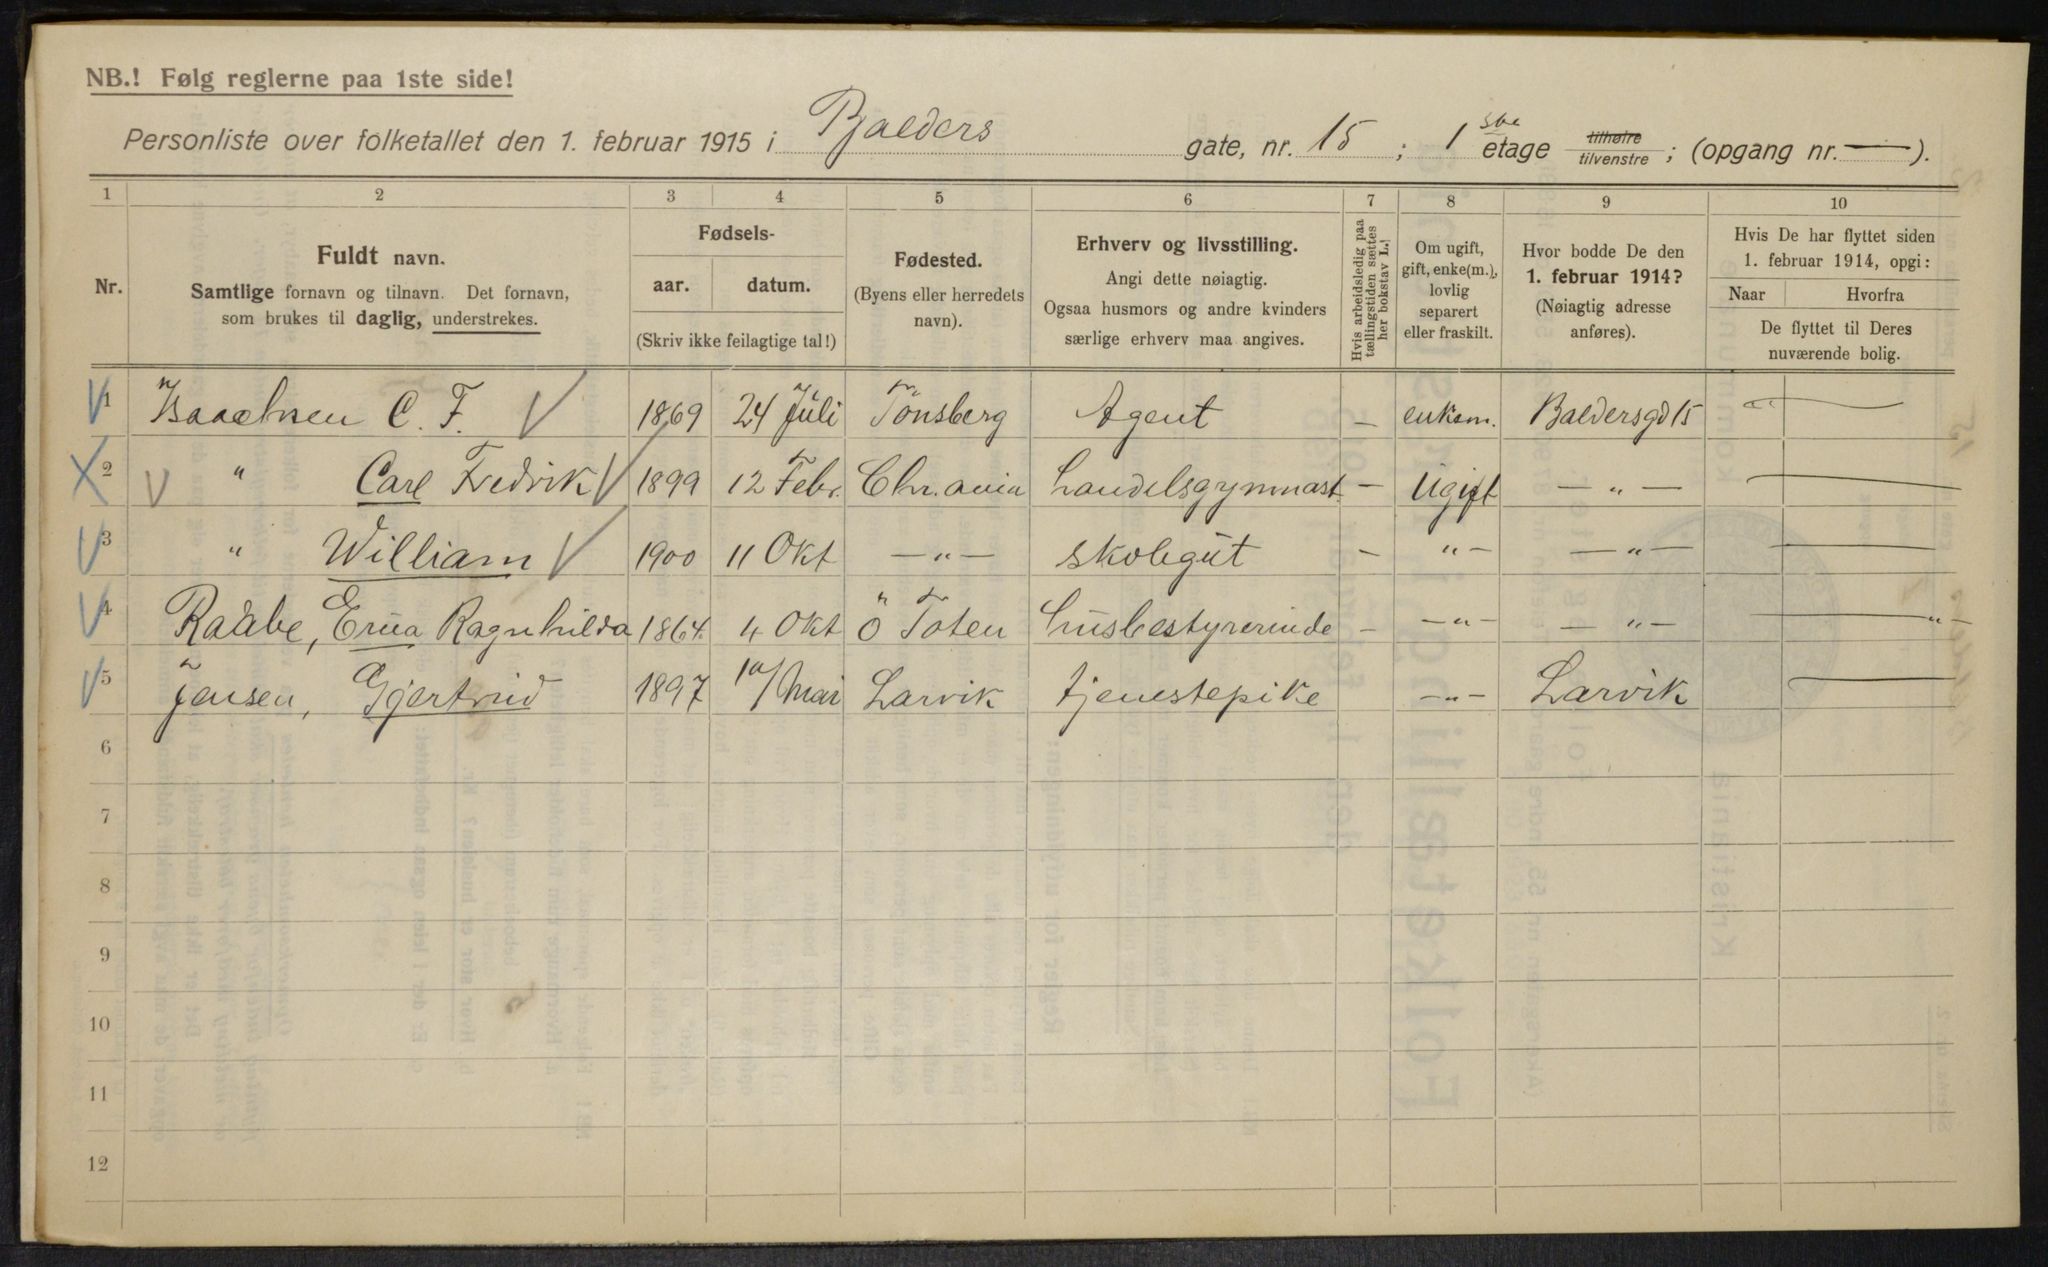 NB.! Følg reglerne paa 1ste side!
Personliste over folketallet den 1. februar 1915 i Balders gate, nr. 15 ; 1 ste etage tilhøire tilvenstre ; (opgang nr. — ).
1 2 3 4 5 6 7 8 9 10
Nr.
Fuldt navn.
Samtlige fornavn og tilnavn. Det fornavn,
som brukes til daglig, understrekes.
Fødsels-
aar. datum.
(Skriv ikke feilagtige tal!)
Fødested.
(Byens eller herredets
navn).
Erhverv og livsstilling.
Angi dette nøiagtig.
Ogsaa husmors og andre kvinders
særlige erhverv maa angives.
Hvis arbeidsledig paa
tællingstiden sættes
her bokstav L.
Om ugift,
gift, enke(m.),
lovlig
separert
eller fraskilt.
Hvor bodde De den
1. februar 1914?
(Nøiagtig adresse
anføres).
Hvis De har flyttet siden
1. februar 1914, opgi:
Naar Hvorfra
De flyttet til Deres
nuværende bolig.
1 Isaachsen C. F. 1869 24 Juli Tønsberg Agent — enkem. Baldersgd 15 —
2 " Carl Fredrik 1899 12 Febr. Chr.ania Handelsgymnast. — Ugift — " — —
3 " William 1900 11 Okt — " — skolegut — " — — " — —
4 Raabe, Erna Ragnhilda 1864 4 Okt Ö Toten Husbestyrerinde — — " — — " — — " —
5 Jensen, Gjertrud 1897 10/ Mai Larvik tjenestepike — " — Larvik —
6
7
8
9
10
11
12